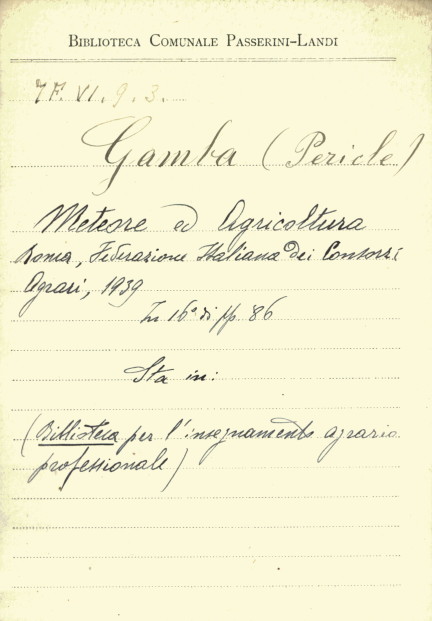 BIBLIOTECA COMUNALE PASSERINI-LANDI
7F. VI. 9. 3.
Gamba (Pericle)
Meteore ed Agricoltura
Roma, Federazione Italiana dei Consorzi
Agrari, 1939
In 16° di pp. 86
Sta in:
(Biblioteca per l'insegnamento agrario
professionale)